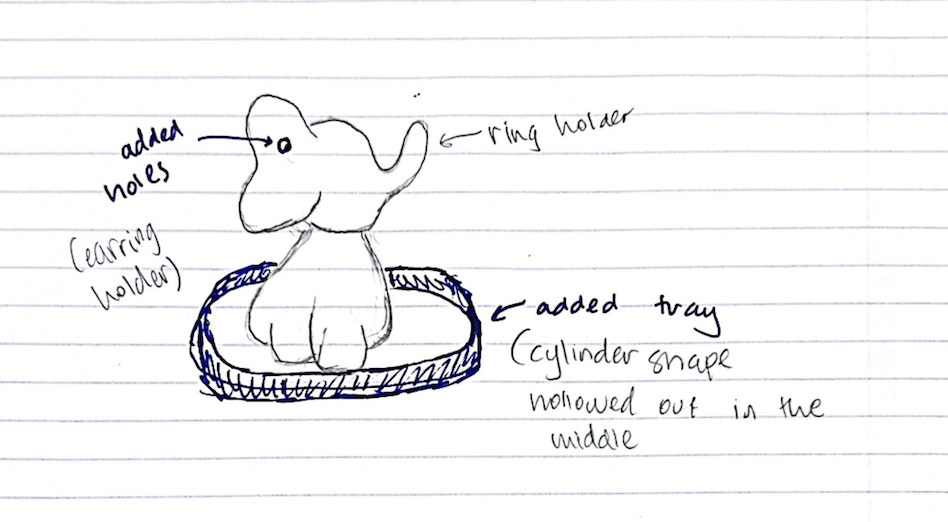 added
holes
(earring
holder)
ring holder
added tray
(cylinder shape
hollowed out in the
middle